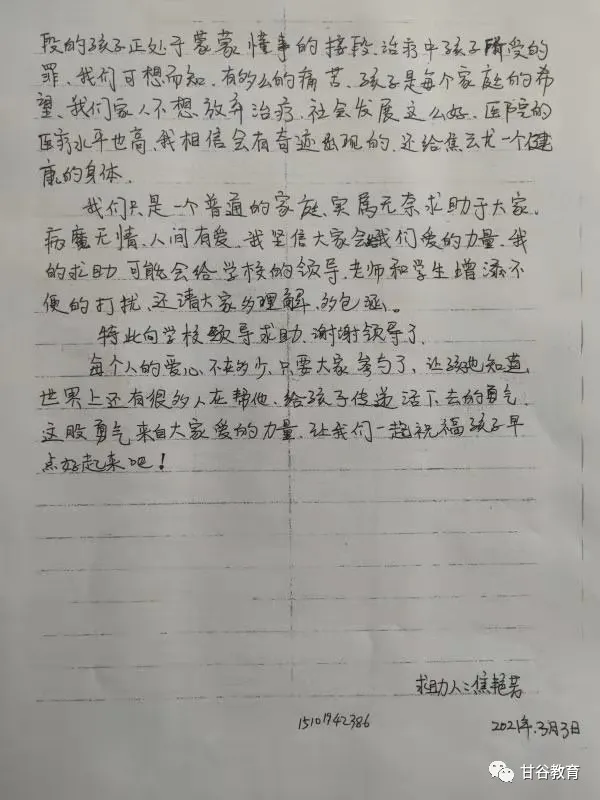 段的孩子正处于蒙蒙懂事的接段.治疗中孩子所受的
罪、我们可想而知.有多么的痛苦.孩子是每个家庭的希
望、我们家人不想放弃治疗.社会发展这么好.医院的
医疗水平也高、我相信会有奇迹出现的.还给焦云龙一个健
康的身体.
我们只是一个普通的家庭、实属无奈求助于大家、
病魔无情、人间有爱、我坚信大家会我们爱的力量.我
的求助.可能会给学校的领导.老师和学生增添不
便的打扰、还请大家多理解、多包涵。
特此向学校领导求助、谢谢领导了.
每个人的爱心.不在多少.只要大家参与了、让孩他知道、
世界上还有很多人在帮他、给孩子传递活下去的勇气、
这股勇气来自大家爱的力量、让我们一起祝福孩子早
点好起来吧！
求助人:焦艳芳
15101742386
2021年.3月3日
甘谷教育